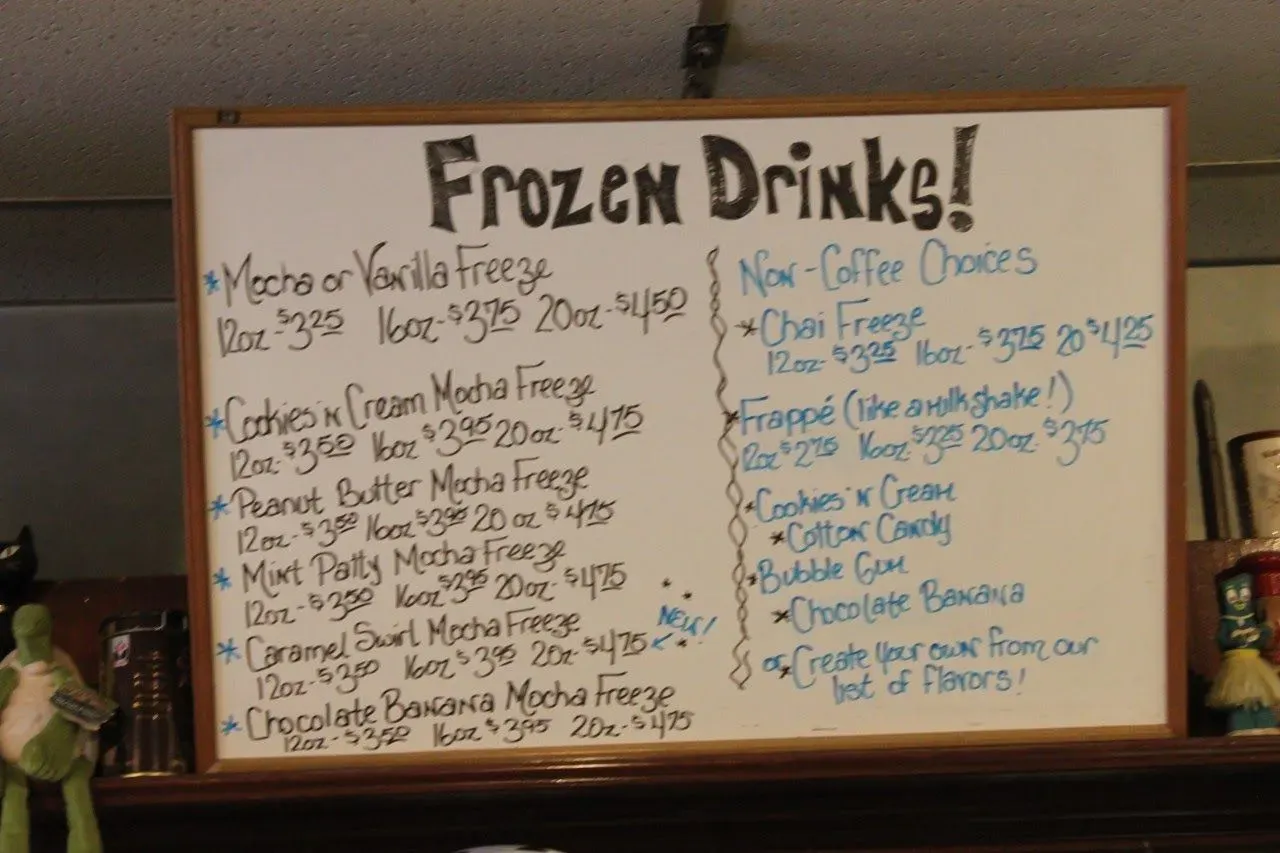 Frozen Drinks!
*Mocha or Vanilla Freeze
12oz-$3.25 16oz-$3.75 20oz-$4.50
*Cookies 'n Cream Mocha Freeze
12oz-$3.50 16oz $3.95 20oz-$4.75
*Peanut Butter Mocha Freeze
12oz-$3.50 16oz $3.95 20 oz $4.75
*Mint Patty Mocha Freeze
12oz-$3.50 16oz $3.95 20oz-$4.75
*Caramel Swirl Mocha Freeze
12oz-$3.50 16oz $3.95 20z-$4.75
New!
*Chocolate Banana Mocha Freeze
12oz-$3.50 16oz $3.95 20z-$4.75
Non-Coffee Choices
*Chai Freeze
12oz-$3.25 16oz-$3.75 20 $4.25
*Frappé (like a milkshake!)
12oz $2.75 16oz $3.25 20oz-$3.75
*Cookies 'n' Cream
*Cotton Candy
*Bubble Gum
*Chocolate Banana
or *Create your own from our
list of flavors!